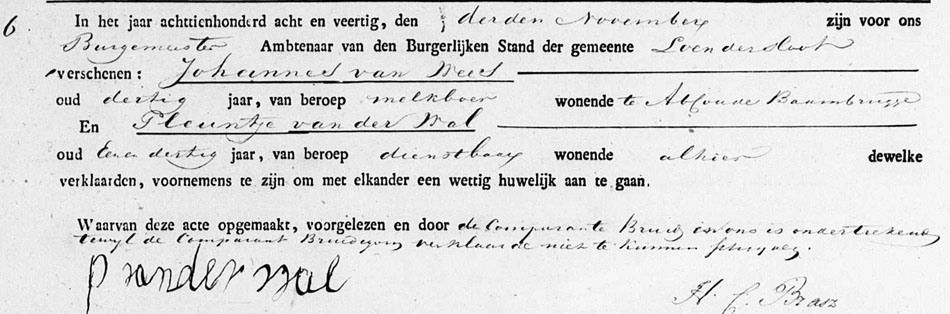 6 In het jaar achttienhonderd acht en veertig, den derden November zijn voor ons
Burgemeester Ambtenaar van den Burgerlijken Stand der gemeente Loendersloot
verschenen: Johannes van Wees
oud dertig jaar, van beroep melkboer wonende te Abcoude Baambrugge
En Pleuntje van der Wal
oud Eenen dertig jaar, van beroep dienstbaar wonende alhier dewelke
verklaarden, voornemens te zijn om met elkander een wettig huwelijk aan te gaan.
Waarvan deze acte opgemaakt, voorgelezen en door de Comparante Bruid en ons is onderteekend
terwyl de Comparant Bruidegom verklaarde niet te kunnen schryven
P van der wal
H. C. Brasz